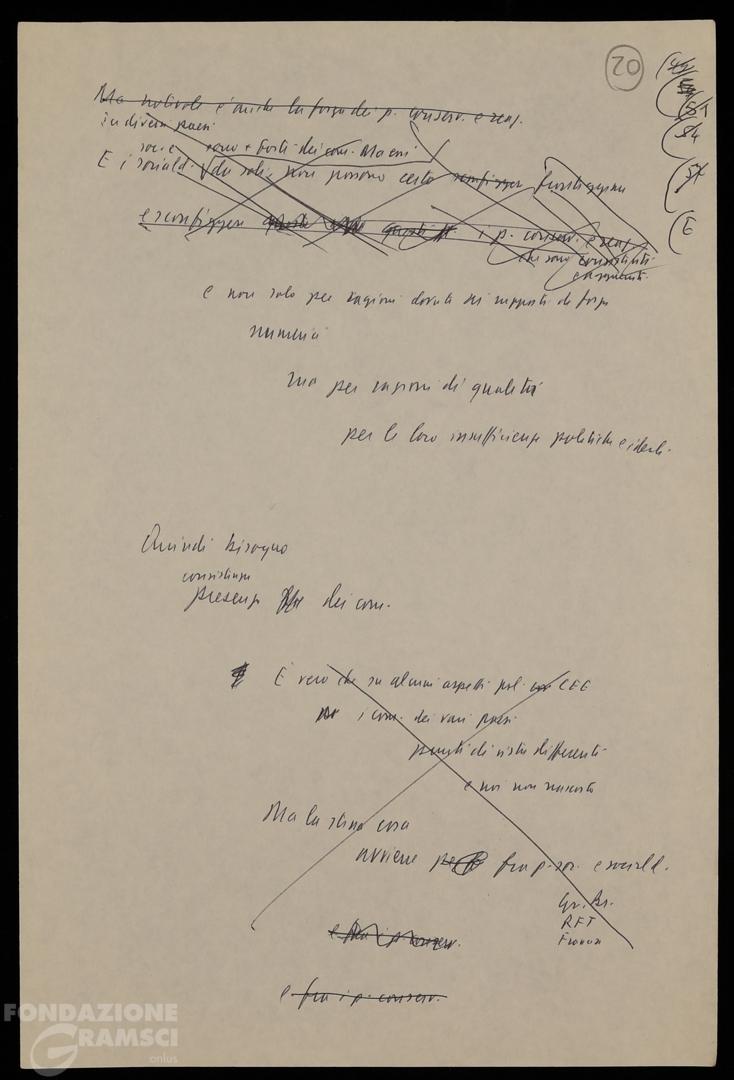 20
51
54
E
Ma notevole è anche la forza dei p. conserv. e reaz.
in diversi paesi
soc. e sono + forti dei com. Ma essi
E i sociald. da soli non possono certo sconfiggere fronteggiare
e sconfiggere questi i p. conserv. e reaz.
che sono consistenti
e agguerriti.
e non solo per ragioni dovute ai rapporti di forza
numerici
ma per ragioni di qualità
per le loro insufficienze politiche e ideali.
Quindi bisogno
consistente
presenza dei com.
È vero che su alcuni aspetti pol. CEE
i com. dei vari paesi
punti di vista differenti
e noi non nascosto
Ma la stessa cosa
avviene fra p. soc. e sociald.
Gr. Br.
RFT
Francia
e fra i p. conserv.
e fra i p. conserv.
FONDAZIONE
GRAMSCI
onlus